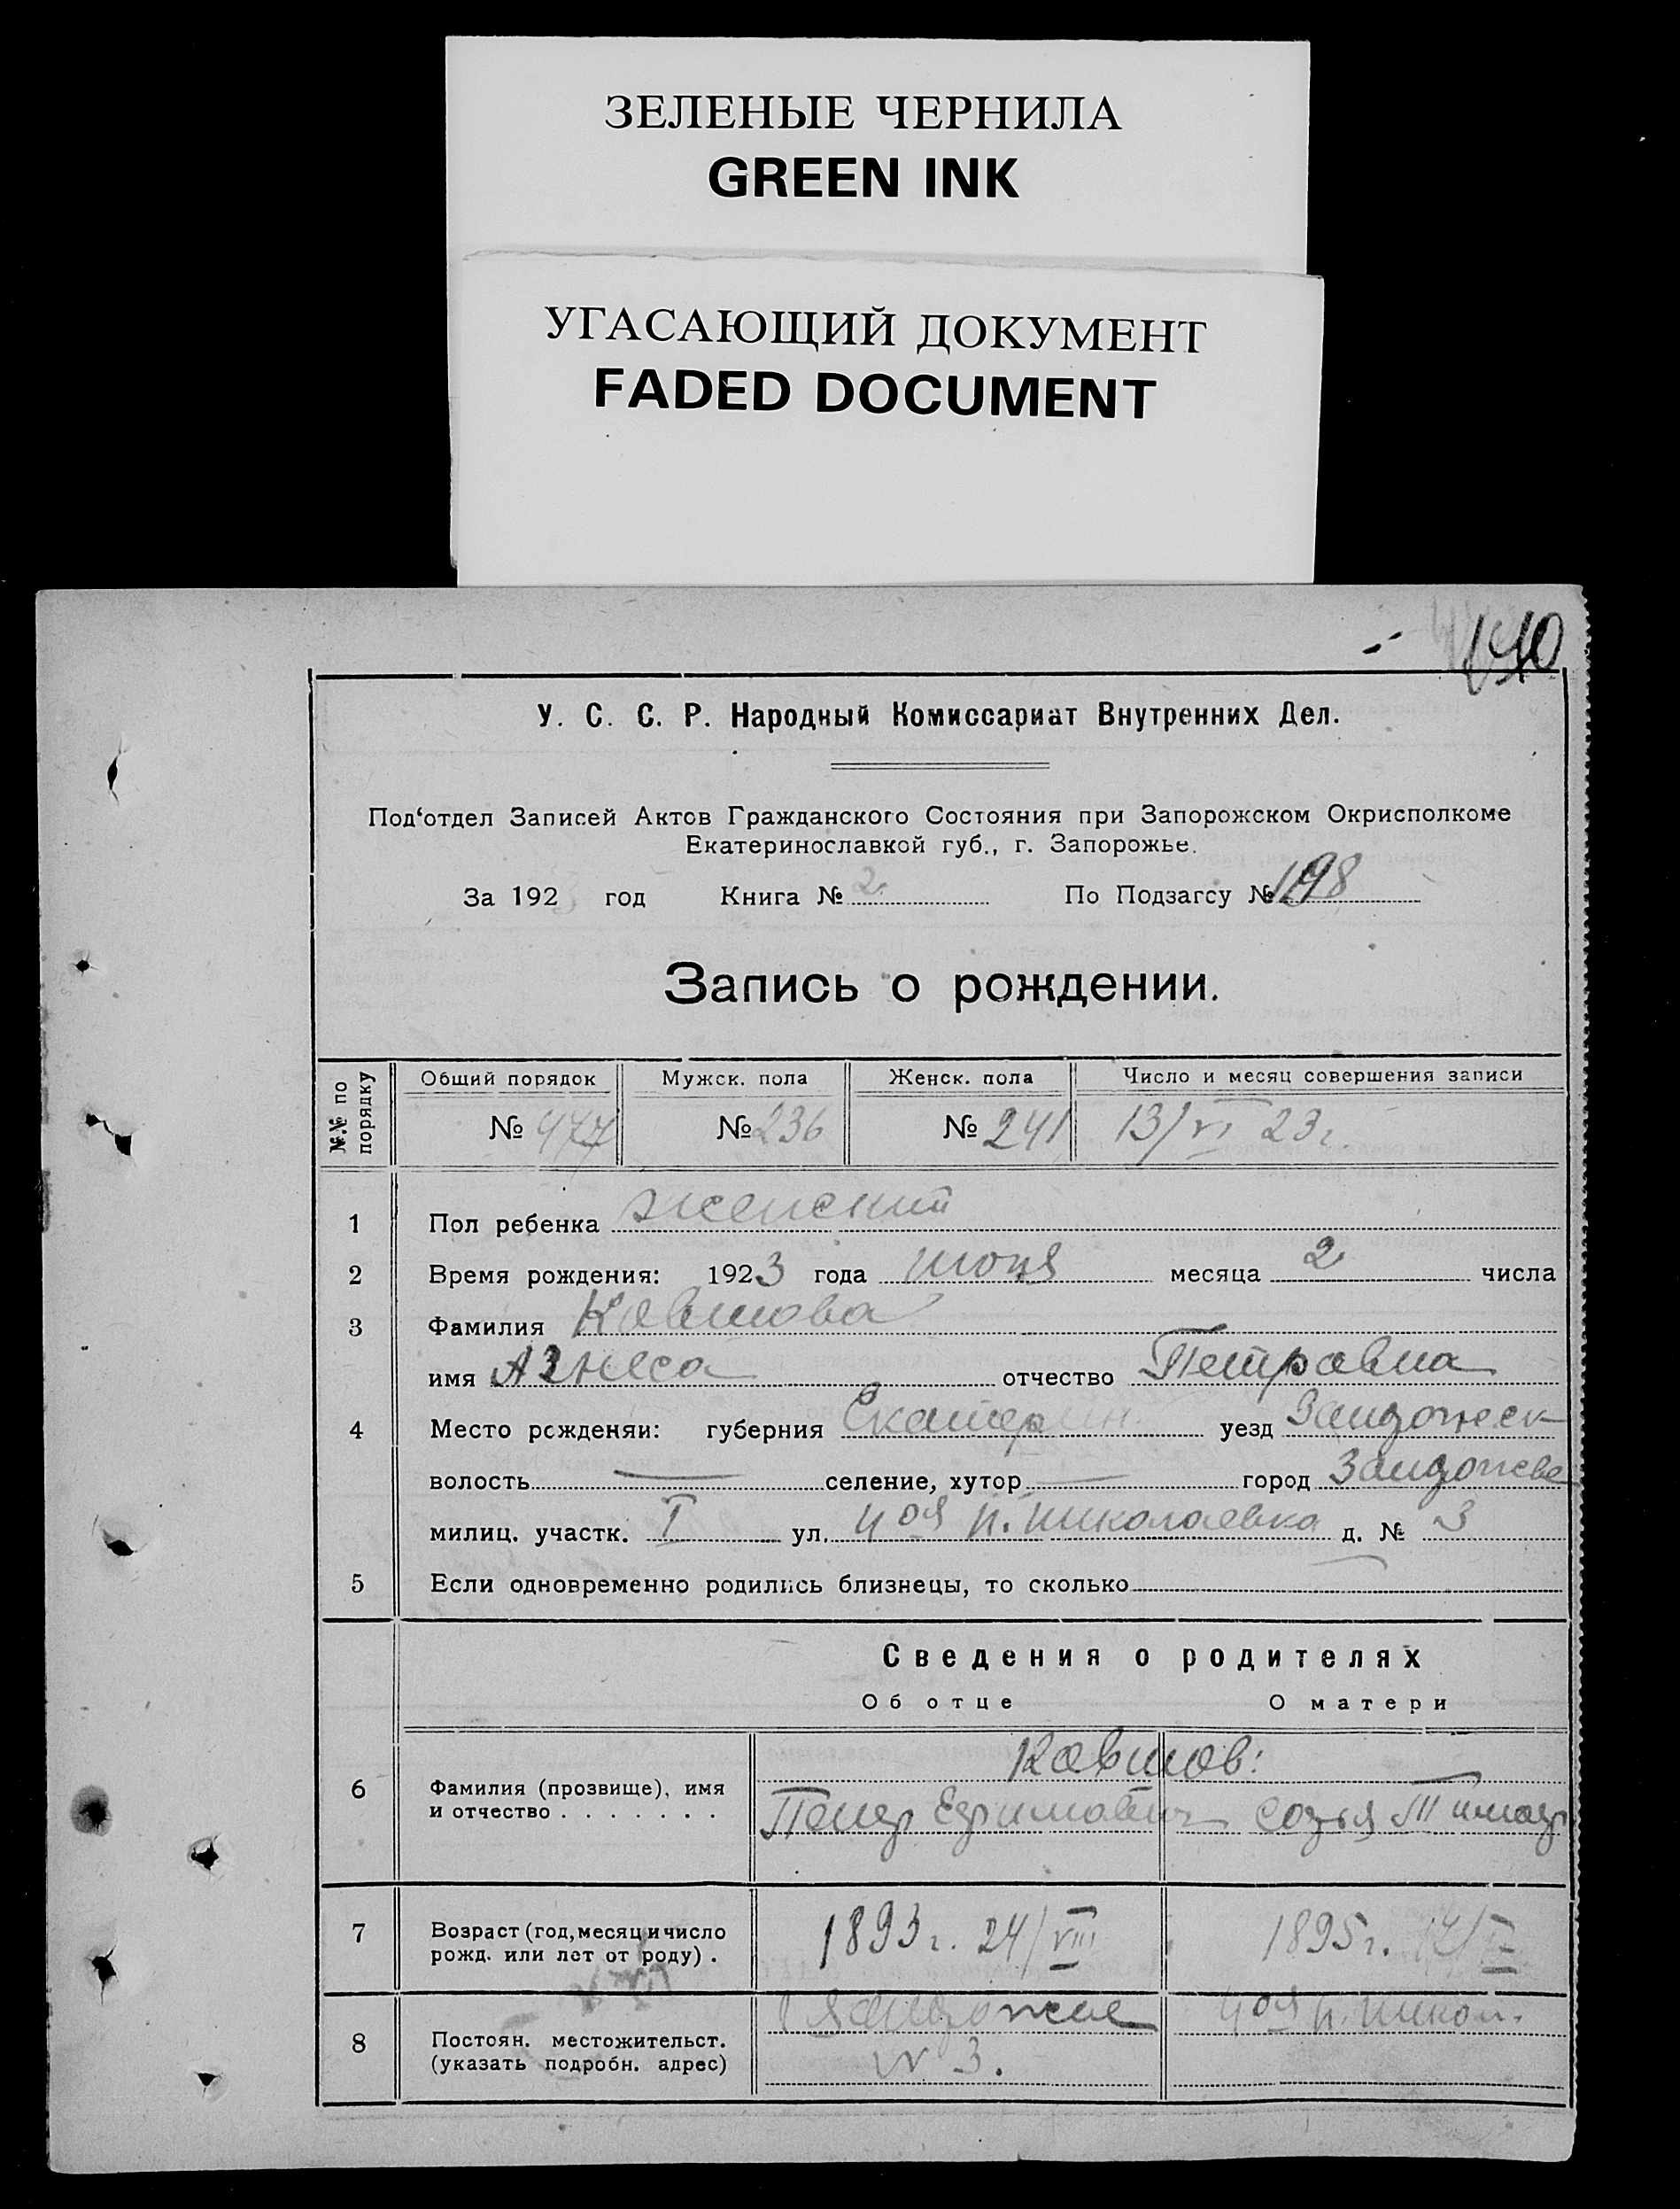 ЗЕЛЕНЫЕ ЧЕРНИЛА
GREEN INK
УГАСАЮЩИЙ ДОКУМЕНТ
FADED DOCUMENT
У. С. С. Р. Народный Комиссариат Внутренних Дел.
Под‘отдел Записей Актов Гражданского Состояния при Запорожском Окрисполкоме
Екатеринославкой губ., г. Запорожье.
За 192 год Книга № 2 По Подзагсу № 198
Запись о рождении.
№№ по порядку
Общий порядок Мужск. пола Женск. пола Число и месяц совершения записи
№ 477 № 236 № 241 13/VI 23 г.
1 Пол ребенка женский
2 Время рождения: 1923 года июня месяца 2 числа
3 Фамилия Ковшова
имя Агнеса отчество Петровна
4 Место рожденяи: губерния Екатерин. уезд Запорожск
волость — селение, хутор — город Запорожье
милиц. участк. I ул. 4 ая н. николаевка д. № 3
5 Если одновременно родились близнецы, то сколько —
Сведения о родителях
Об отце О матери
Ковшов:
6 Фамилия (прозвище), имя
и отчество . . . . . . .
Петр Ефимович Софья
7 Возраст (год, месяц и число
рожд. или лет от роду) .
1893 г. 24/VIII 1895 г.
8 Постоян. местожительст.
(указать подробн. адрес)
Запорожье 4 ая н. никол.
N 3.